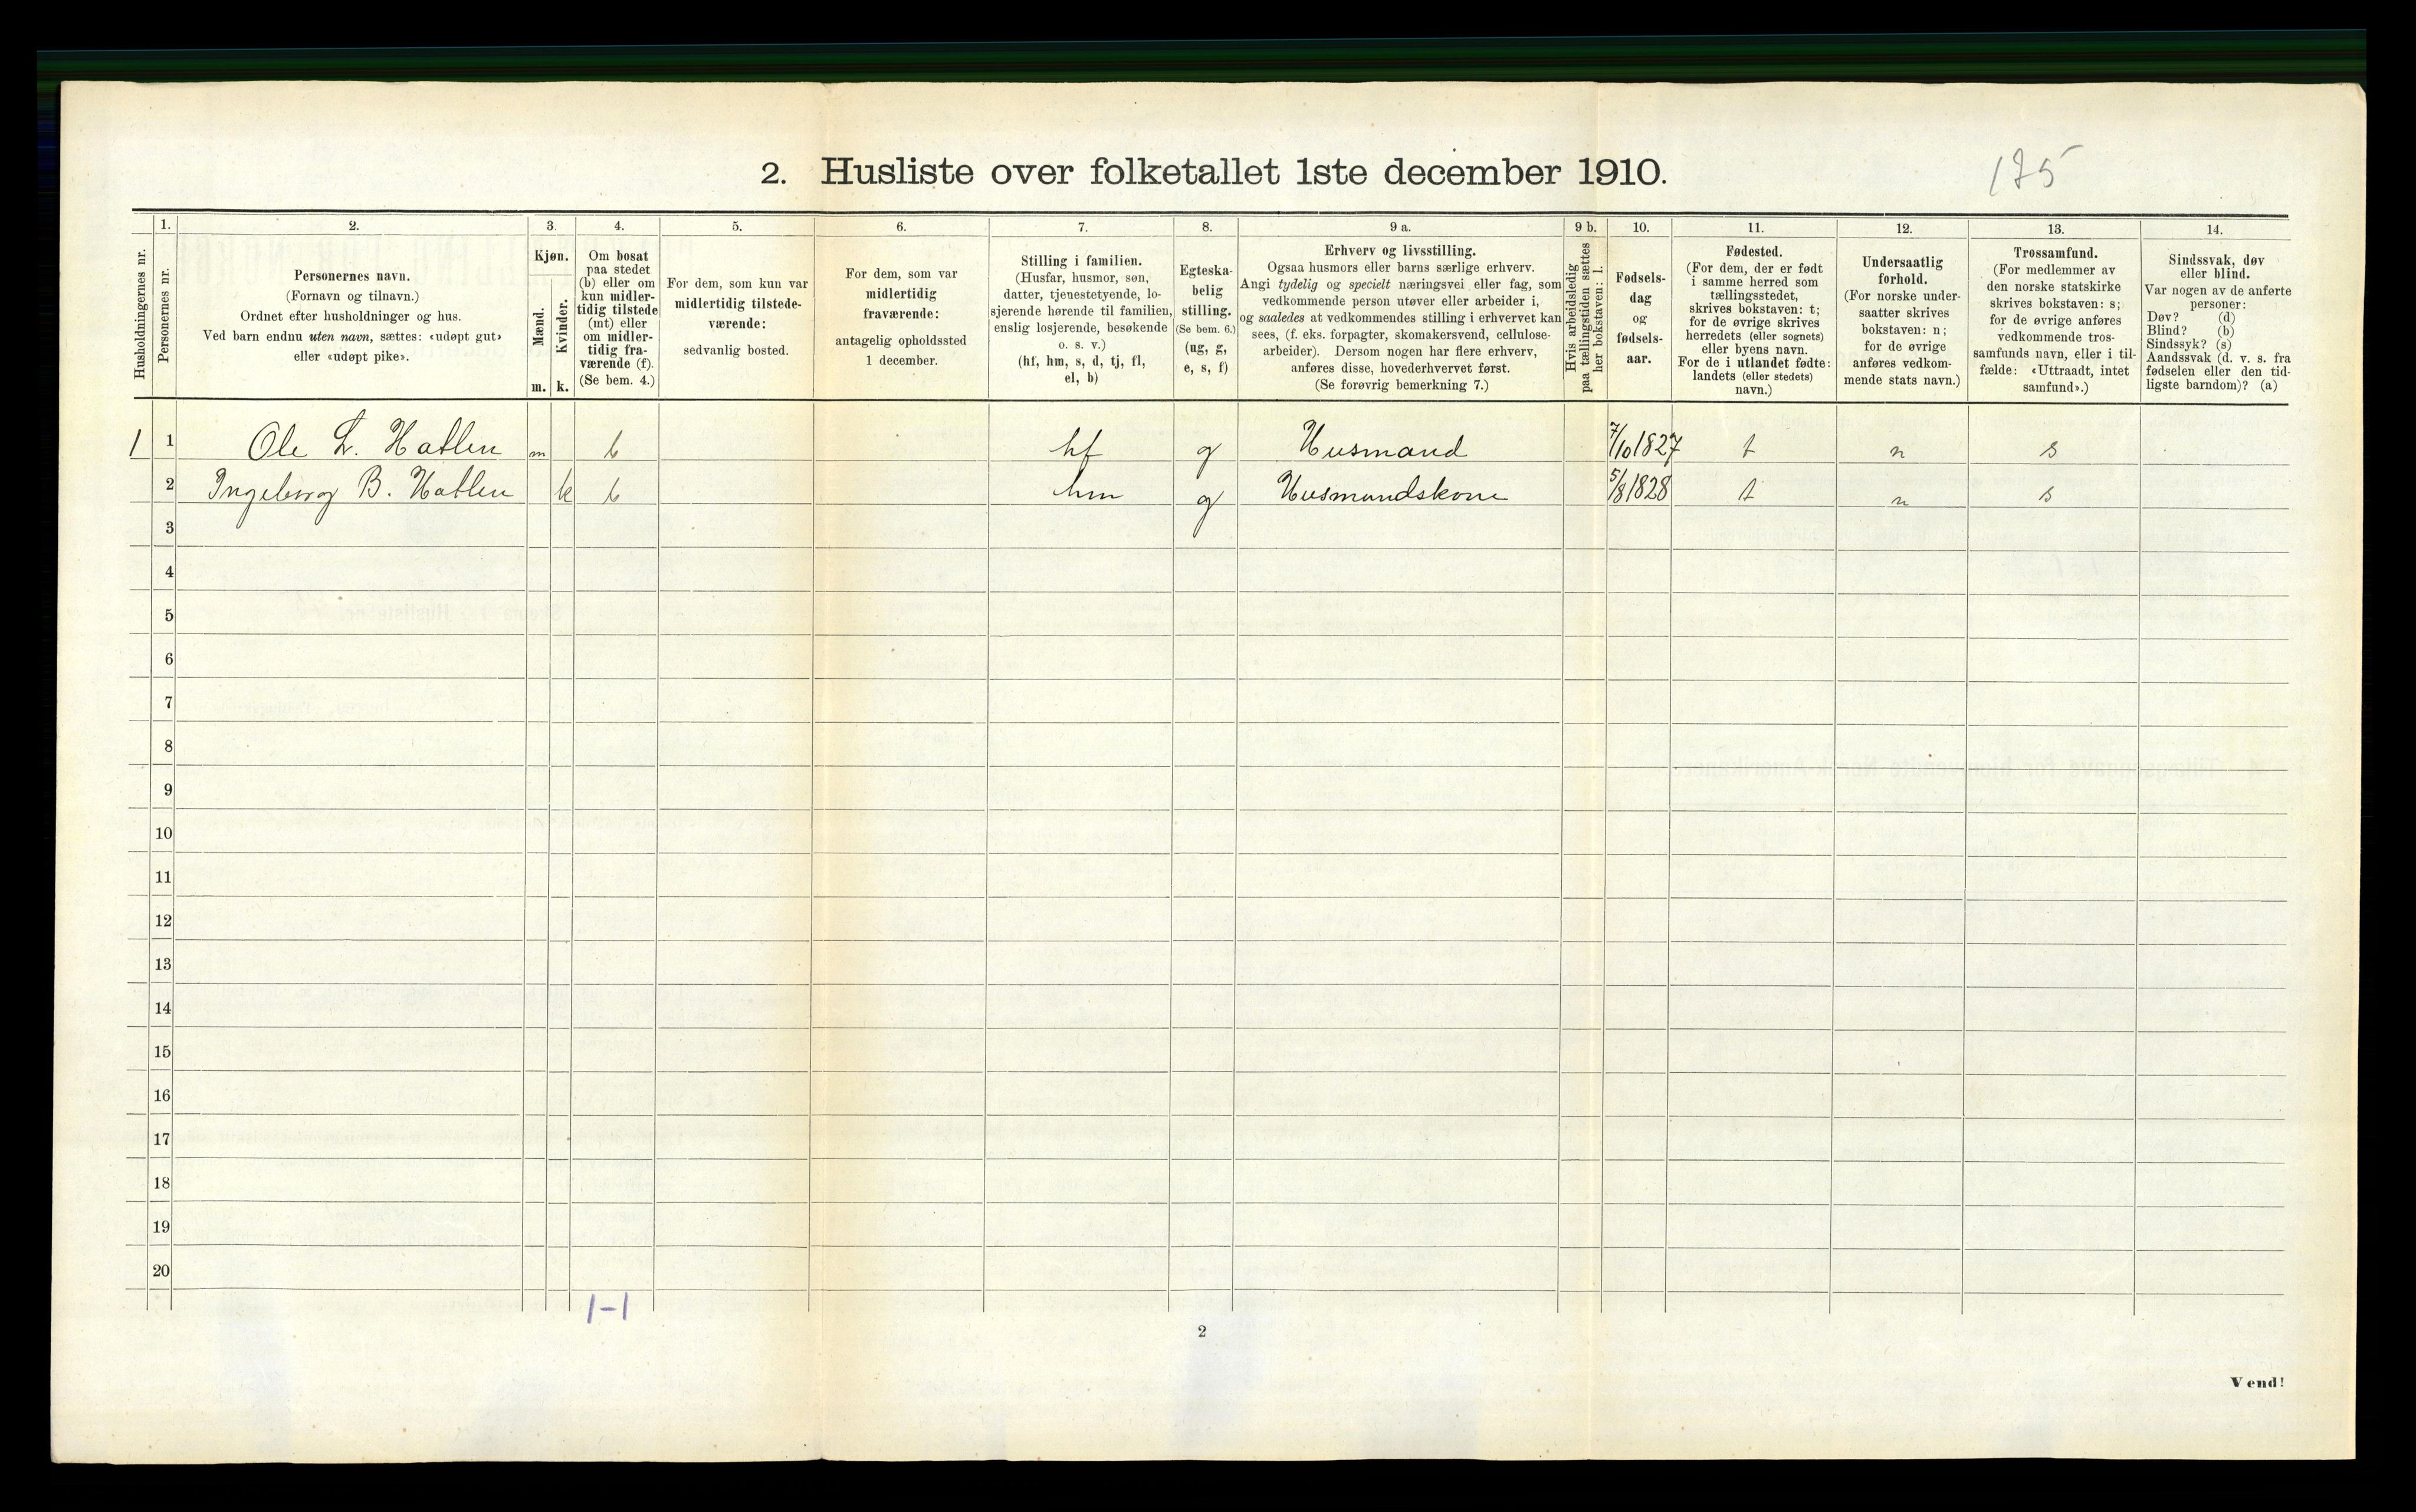 2. Husliste over folketallet 1ste december 1910.
175
Husholdningernes nr.
1.
Personernes nr.
2.
Personernes navn.
(Fornavn og tilnavn.)
Ordnet efter husholdninger og hus.
Ved barn endnu uten navn, sættes: «udøpt gut»
eller «udøpt pike».
3.
Kjøn.
Mænd.
Kvinder.
m. k.
4.
Om bosat
paa stedet
(b) eller om
kun midler-
tidig tilstede
(mt) eller
om midler-
tidig fra-
værende (f).
(Se bem. 4.)
5.
For dem, som kun var
midlertidig tilstede-
værende:
sedvanlig bosted.
6.
For dem, som var
midlertidig
fraværende:
antagelig opholdssted
1 december.
7.
Stilling i familien.
(Husfar, husmor, søn,
datter, tjenestetyende, lo-
sjerende hørende til familien,
enslig losjerende, besøkende
o. s. v.)
(hf, hm, s, d, tj, fl,
el, b)
8.
Egteska-
belig
stilling.
(Se bem. 6.)
(ug, g,
e, s, f)
9 a.
Erhverv og livsstilling.
Ogsaa husmors eller barns særlige erhverv.
Angi tydelig og specielt næringsvei eller fag, som
vedkommende person utøver eller arbeider i,
og saaledes at vedkommendes stilling i erhvervet kan
sees, (f. eks. forpagter, skomakersvend, cellulose-
arbeider). Dersom nogen har flere erhverv,
anføres disse, hovederhvervet først.
(Se forøvrig bemerkning 7.)
9 b.
Hvis arbeidsledig
paa tællingstiden sættes
her bokstaven: l.
10.
Fødsels-
dag
og
fødsels-
aar.
11.
Fødested.
(For dem, der er født
i samme herred som
tællingsstedet,
skrives bokstaven: t;
for de øvrige skrives
herredets (eller sognets)
eller byens navn.
For de i utlandet fødte:
landets (eller stedets)
navn.)
12.
Undersaatlig
forhold.
(For norske under-
saatter skrives
bokstaven: n;
for de øvrige
anføres vedkom-
mende stats navn.)
13.
Trossamfund.
(For medlemmer av
den norske statskirke
skrives bokstaven: s;
for de øvrige anføres
vedkommende tros-
samfunds navn, eller i til-
fælde: «Uttraadt, intet
samfund».)
14.
Sindssvak, døv
eller blind.
Var nogen av de anførte
personer:
Døv? (d)
Blind? (b)
Sindssyk? (s)
Aandssvak (d. v. s. fra
fødselen eller den tid-
ligste barndom)? (a)
1 1 Ole L. Hatlen m b hf g Husmand 7/10 1827 t n s
2 Ingeborg B. Hatlen k b hm g Husmandskone 5/8 1828 t n s
3
4
5
6
7
8
9
10
11
12
13
14
15
16
17
18
19
20
1-1
2
Vend!